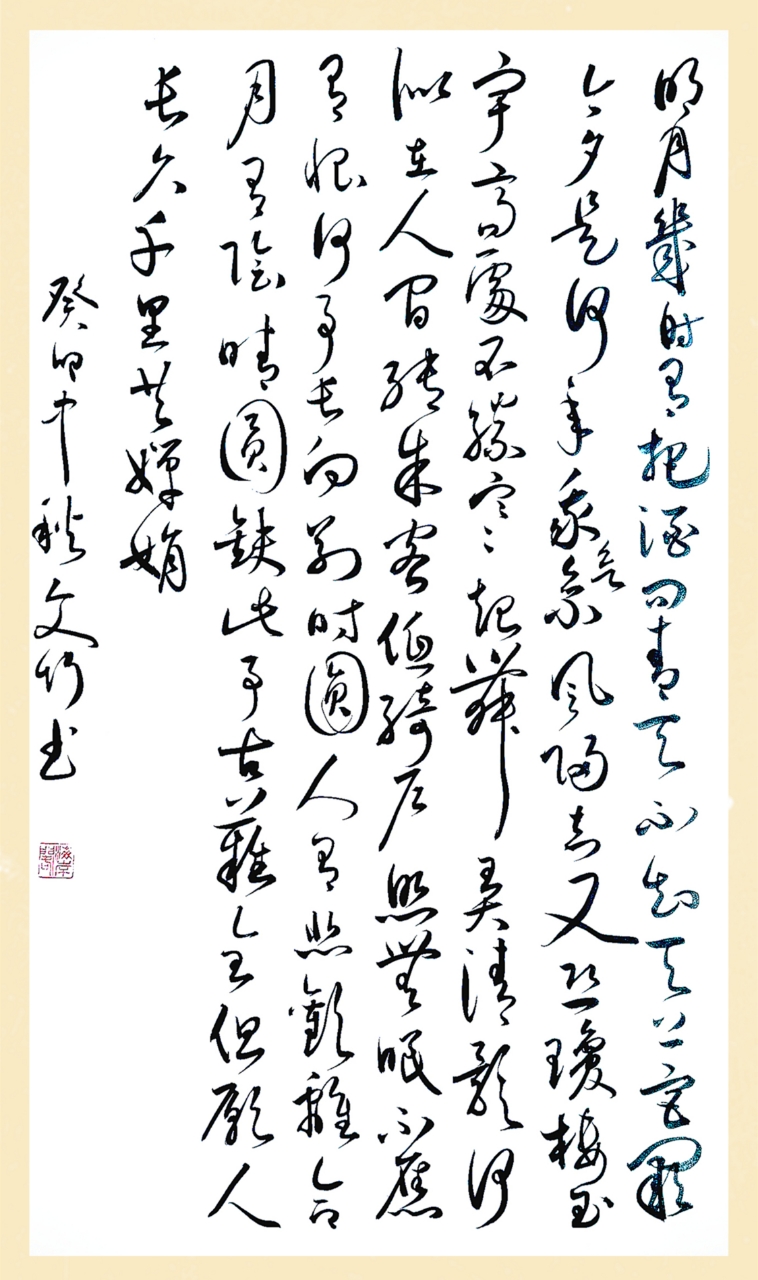 明月幾时有把酒问青天不知天上宫闕
今夕是何年我欲乘风归去又恐瓊樓玉
宇高處不勝寒起舞弄清影何
似在人间转朱阁低绮户照無眠不應
有恨何事长向别时圓人有悲歡離合
月有陰晴圓缺此事古難全但願人
长久千里共嬋娟
癸卯中秋文竹书